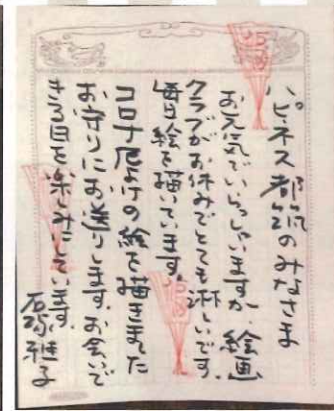 ハピネス都筑のみなさま
お元気でいらっしゃいますか 絵画
クラブがお休みでとても淋しいです。
毎日絵を描いています。
コロナ厄よけの絵を描きました
お守りにお送りします。お会いで
きる日を楽しみにしています。